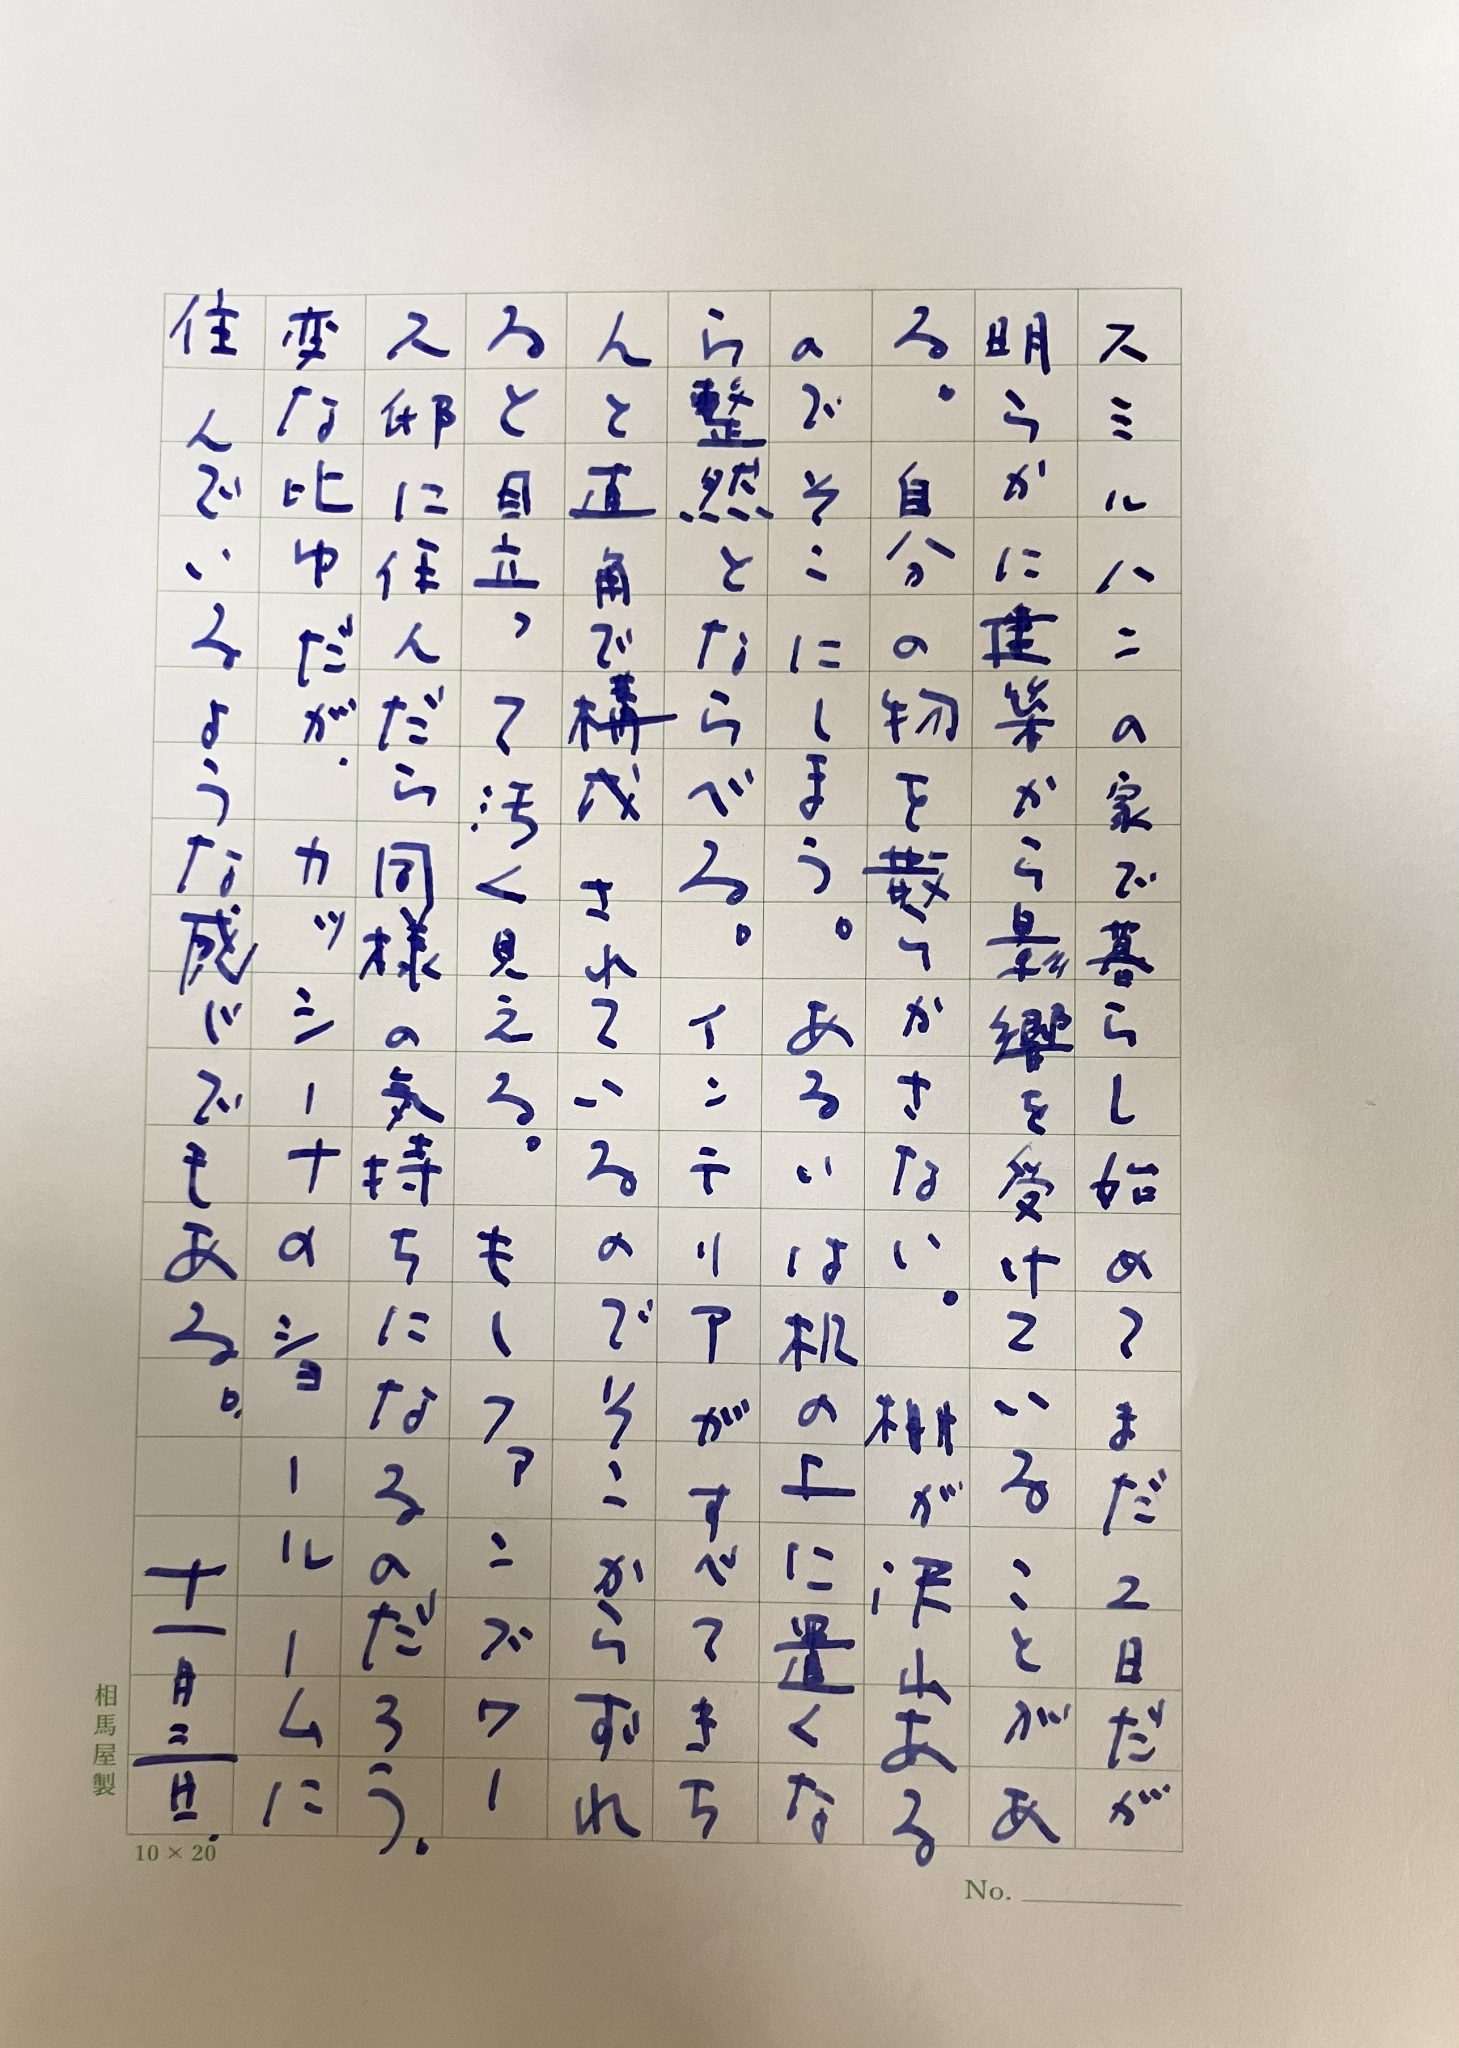 スミルハニの家で暮らし始めてまだ2日だが
明らかに建築から影響を受けていることがあ
る。自分の物を散らかさない。棚が沢山ある
のでそこにしまう。あるいは机の上に置くな
らば整然とならべる。インテリアがすべてきち
んと直角で構成されているのでそこからずれ
ると目立って汚く見える。もしファンズワー
ス邸に住んだら同様の気持ちになるのだろう。
変な比ゆだが、カッシーナのショールームに
住んでいるような感じでもある。 十一月二日.
相馬屋製
10×20
No.